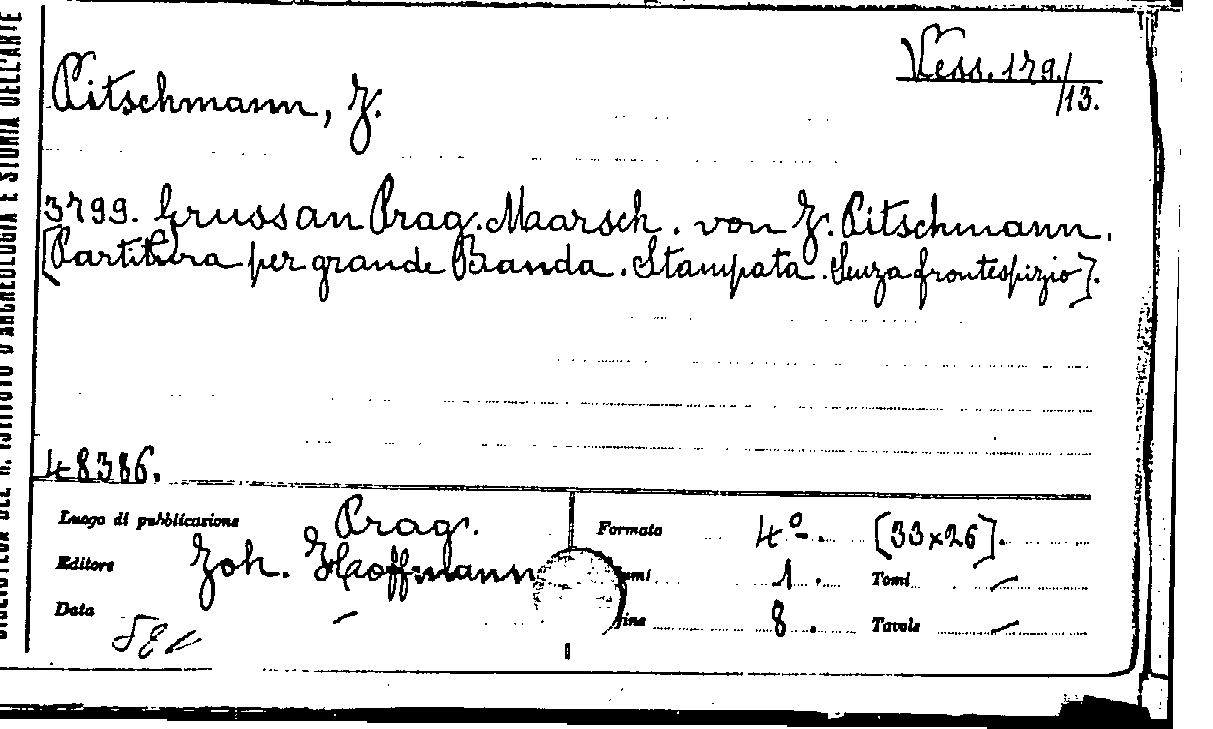 BIBLIOTECA DEL R. ISTITUTO D'ARCHEOLOGIA E STORIA DELL'ARTE
Vess. 179./13.
Pitschmann, J.
3799. Gruss an Prag. Maarsch. von J. Pitschmann.
[Partitura per grande Banda. Stampata. Senza frontespizio].
48386.
Luogo di pubblicazione Prag. Formato 4º. [33x26].
Editore Joh. Hoffmann umi 1. Tomi –
Data – gine 8. Tavole –